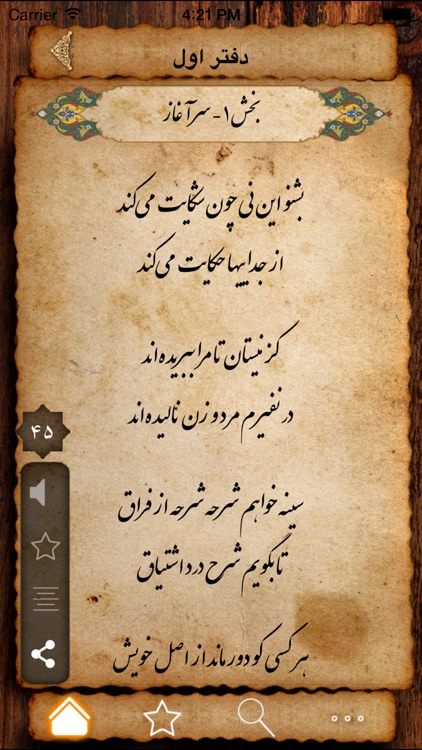 Carrier 4:21 PM
دفتر اول
بخش ۱ - سرآغاز
بشنو این نی چون شکایت می‌کند
از جداییها حکایت می‌کند
کز نیستان تا مرا ببریده‌اند
در نفیرم مرد و زن نالیده‌اند
۴۵
سینه خواهم شرحه شرحه از فراق
تا بگویم شرح درد اشتیاق
هر کسی کو دور ماند از اصل خویش